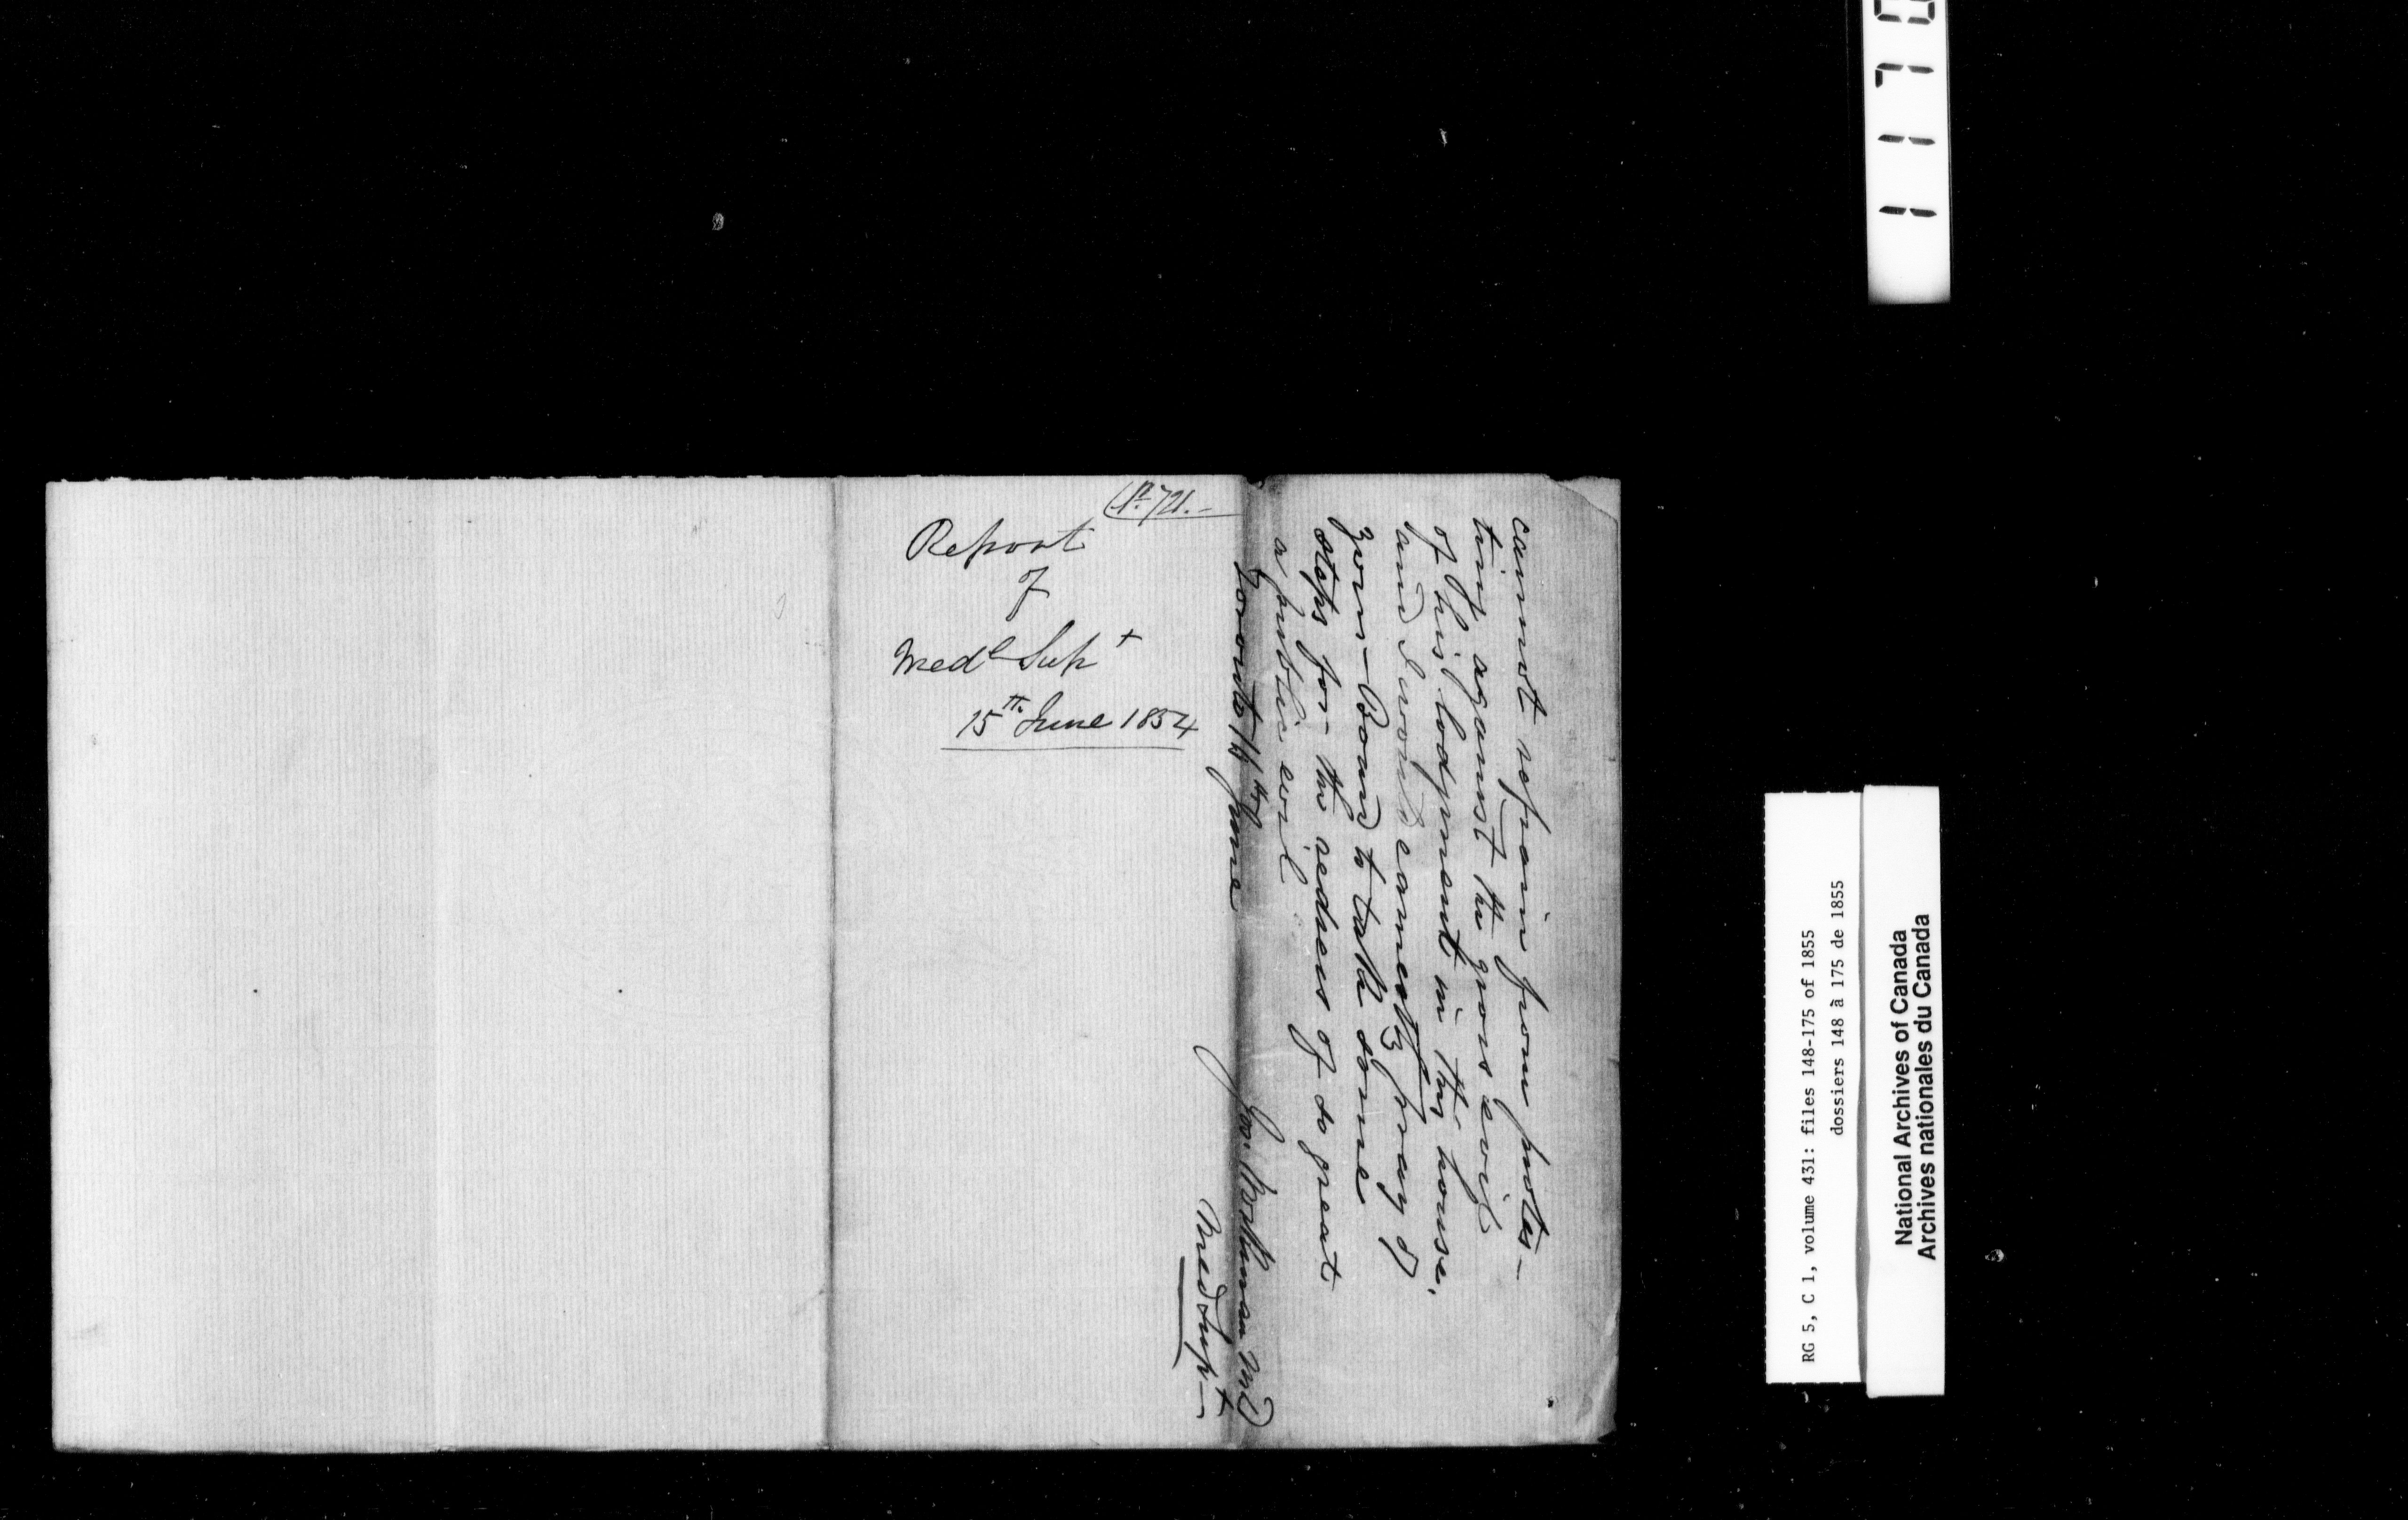 cannot refrain from protes-
ting against the gross evil
of his lodgment in this house.
and I would earnestly pray of
your Board to take some
steps for the redress of so great
a public evil
Toronto, 15th June
Jos. Workman MD
Med Supt
No 721.-
Report
of
Medl Supt
15th June 1854
1170
RG 5, C 1, volume 431: files 148-175 of 1855
dossiers 148 à 175 de 1855
National Archives of Canada
Archives nationales du Canada